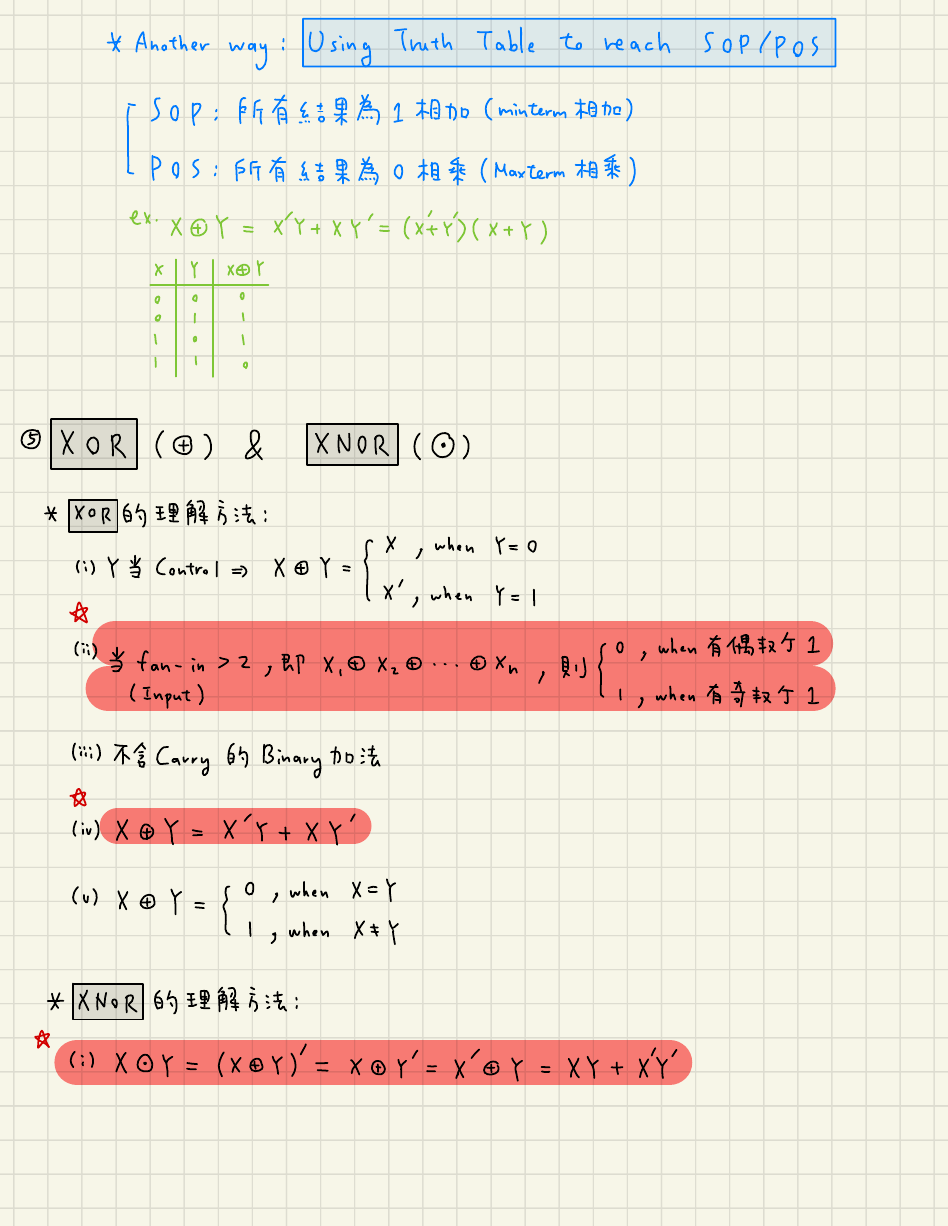 * Another way: Using Truth Table to reach SOP/POS
SOP: 所有結果為 1 相加 (minterm 相加)
POS: 所有結果為 0 相乘 (Maxterm 相乘)
ex. X⊕Y = X'Y + XY' = (X'+Y')(X+Y)
X Y X⊕Y
0 0 0
0 1 1
1 0 1
1 1 0
⑤ XOR (⊕) & XNOR (⊙)
* XOR 的理解方法:
(i) Y 當 Control ⇒ X⊕Y = { X , when Y=0
X' , when Y=1
☆
(ii) 當 fan-in > 2 , 即 X₁⊕X₂⊕…⊕Xn , 則 { 0 , when 有偶數个 1
(Input) 1 , when 有奇數个 1
(iii) 不含 Carry 的 Binary 加法
☆
(iv) X⊕Y = X'Y + XY'
(v) X⊕Y = { 0 , when X=Y
1 , when X≠Y
* XNOR 的理解方法:
☆ (i) X⊙Y = (X⊕Y)' = X⊕Y' = X'⊕Y = XY + X'Y'